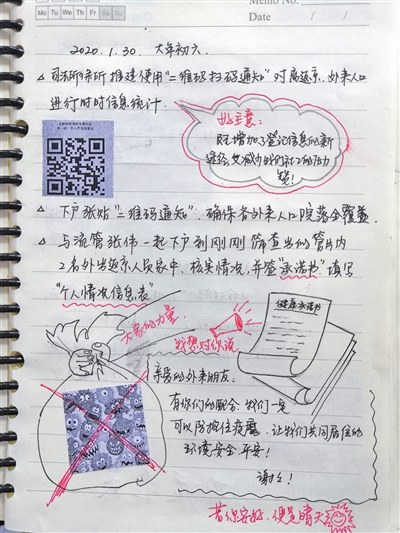 Memo No.
Mo Tu We Th Fr Sa Su
Date / /
2020.1.30. 大年初六.
△ 司法所 推进使用"二维码扫码通知"对属返京、外来人口
进行时时信息统计.
好主意:
既增加了登记信息的新
途径,又减少我们社工的压力
赞!
△ 下户张贴"二维码通知",确保各外来人口院落全覆盖
△ 与流管张伟一起下户到刚刚筛查出的管片内
2名外出返京人员家中,核实情况,并签"承诺书"填写
"个人情况信息表"
大家的力量
我想对你说
健康承诺书
亲爱的外来朋友:
有你们的配合,我们一定
可以防控住疫情,让我们共同居住的
环境安全平安!
谢谢!
若你安好,便是晴天